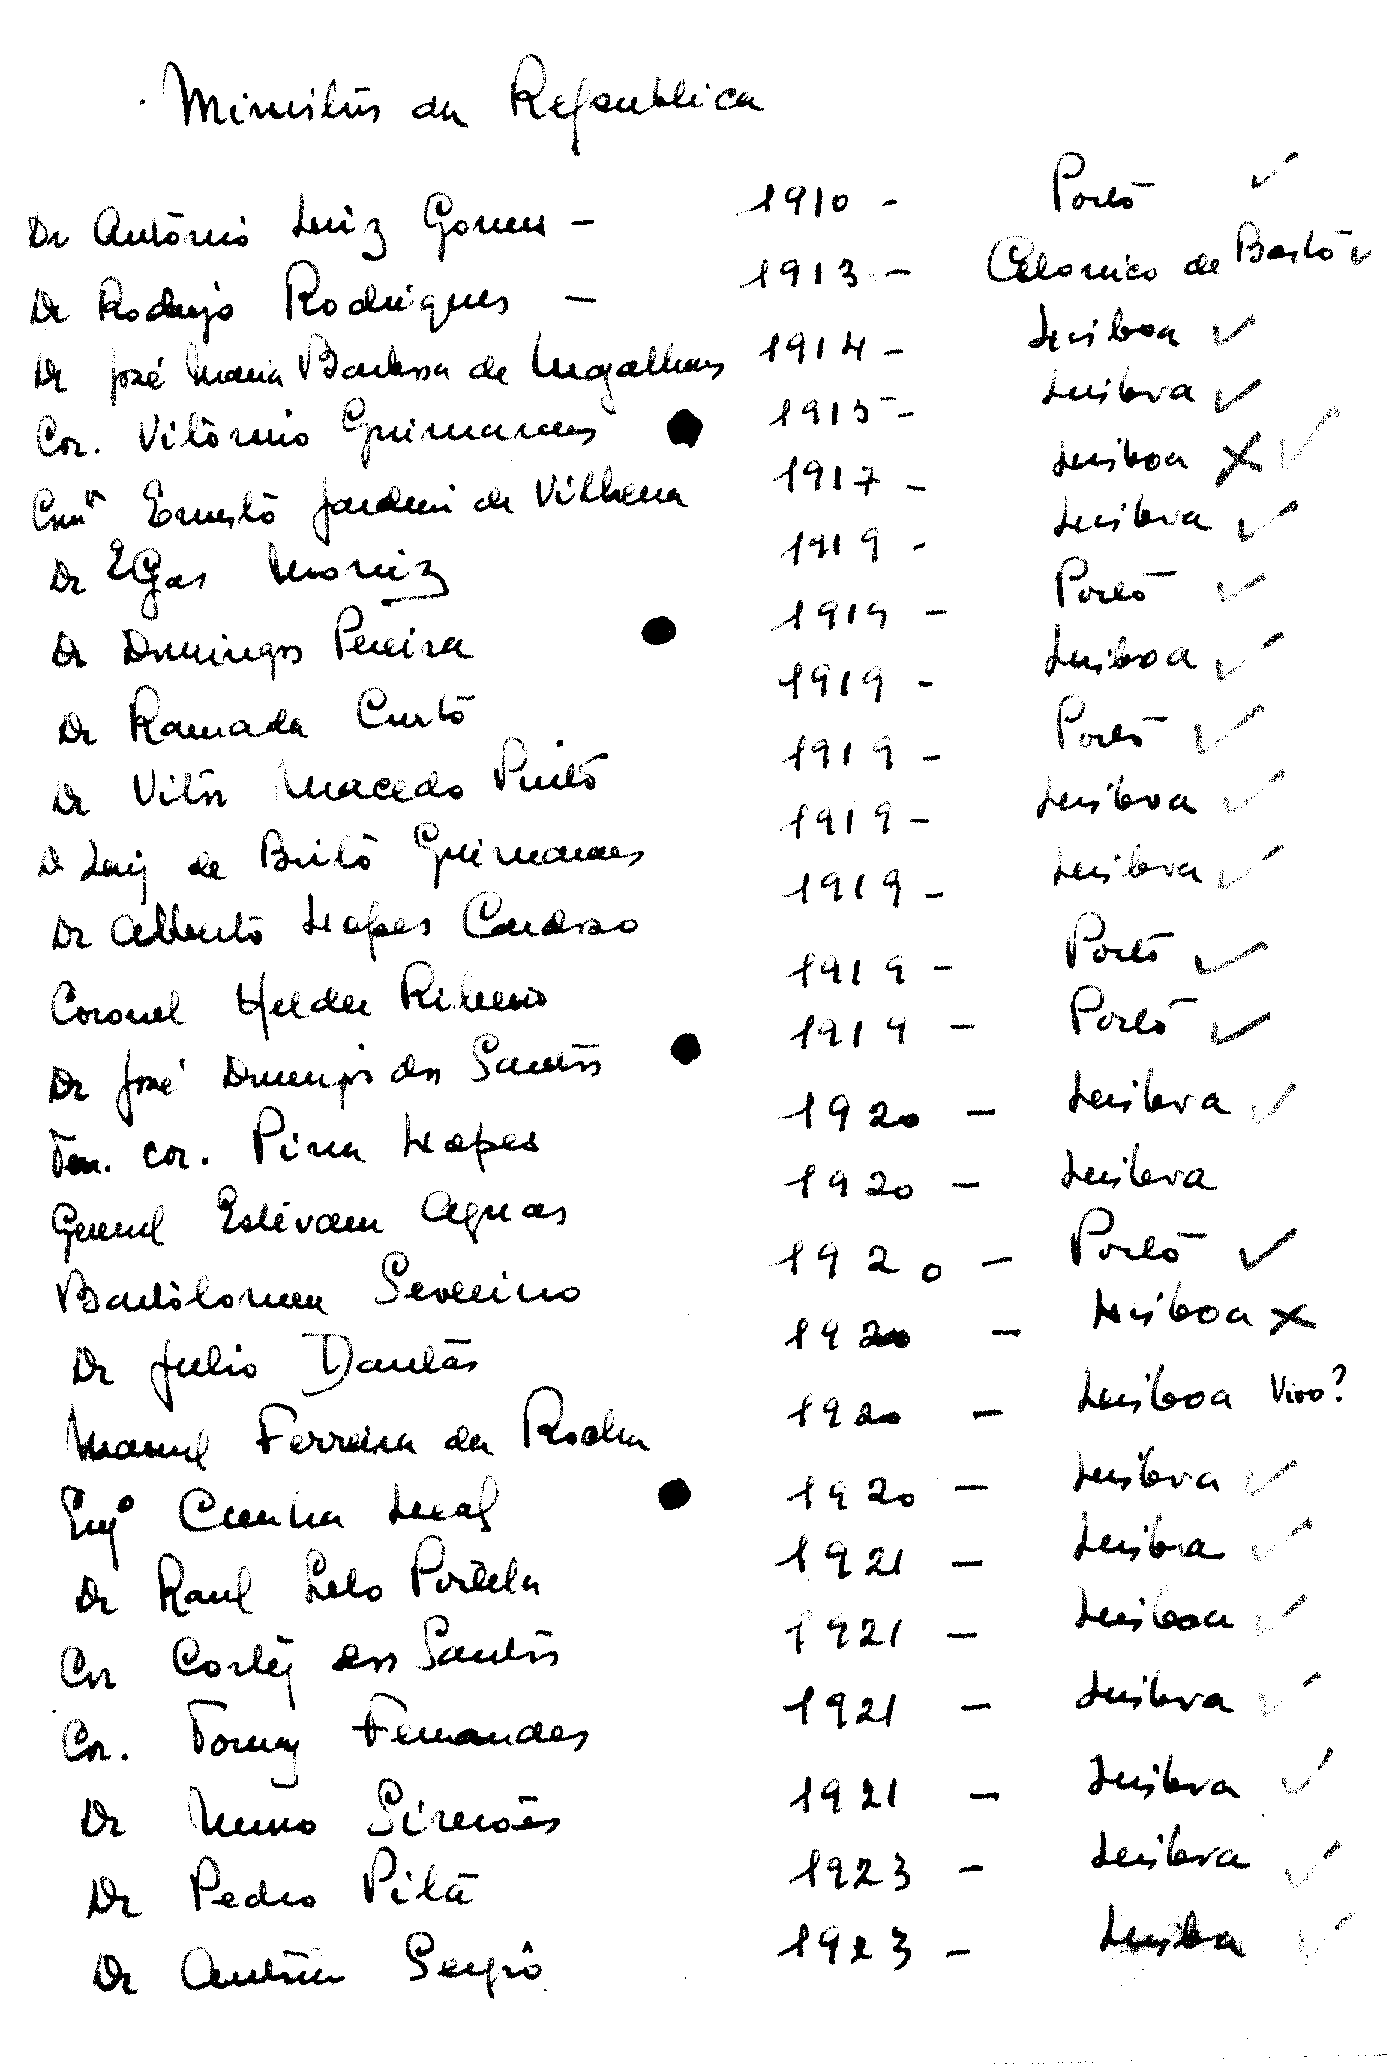 Ministros da Republica
Dr António Luiz Gomes - 1910 - Porto ✓
Dr Rodrigo Rodrigues - 1913 - Celorico de Basto ✓
Dr José Maria Barbosa de Magalhaes 1914 - Lisboa ✓
Cor. Vitorino Guimaraes ● 1915 - Lisboa ✓
Cmte Ernesto Jardim de Vilhena 1917 - Lisboa X ✓
Dr Egas Moniz 1919 - Lisboa ✓
Dr Domingos Pereira ● 1919 - Porto ✓
Dr Ramada Curto 1919 - Lisboa ✓
Dr Vitor Macedo Pinto 1919 - Porto ✓
D Luiz de Brito Guimaraes 1919 - Lisboa ✓
Dr Alberto Lopes Cardoso 1919 - Lisboa ✓
Coronel Helder Ribeiro 1919 - Porto ✓
Dr José Domingos dos Santos ● 1919 - Porto ✓
Ten. cor. Pina Lopes 1920 - Lisboa ✓
General Estevam Aguas 1920 - Lisboa
Bartolomeu Severino 1920 - Porto ✓
Dr Julio Dantas 1920 - Lisboa X
Manuel Ferreira da Rocha 1920 - Lisboa Vivo?
Engº Cunha Leal ● 1920 - Lisboa ✓
Dr Raul Lelo Portela 1921 - Lisboa ✓
Cor Cortez dos Santos 1921 - Lisboa ✓
Cor. Tomaz Fernandes 1921 - Lisboa ✓
Dr Nuno Simões 1921 - Lisboa ✓
Dr Pedro Pita 1923 - Lisboa ✓
Dr António Sergio 1923 - Lisboa ✓